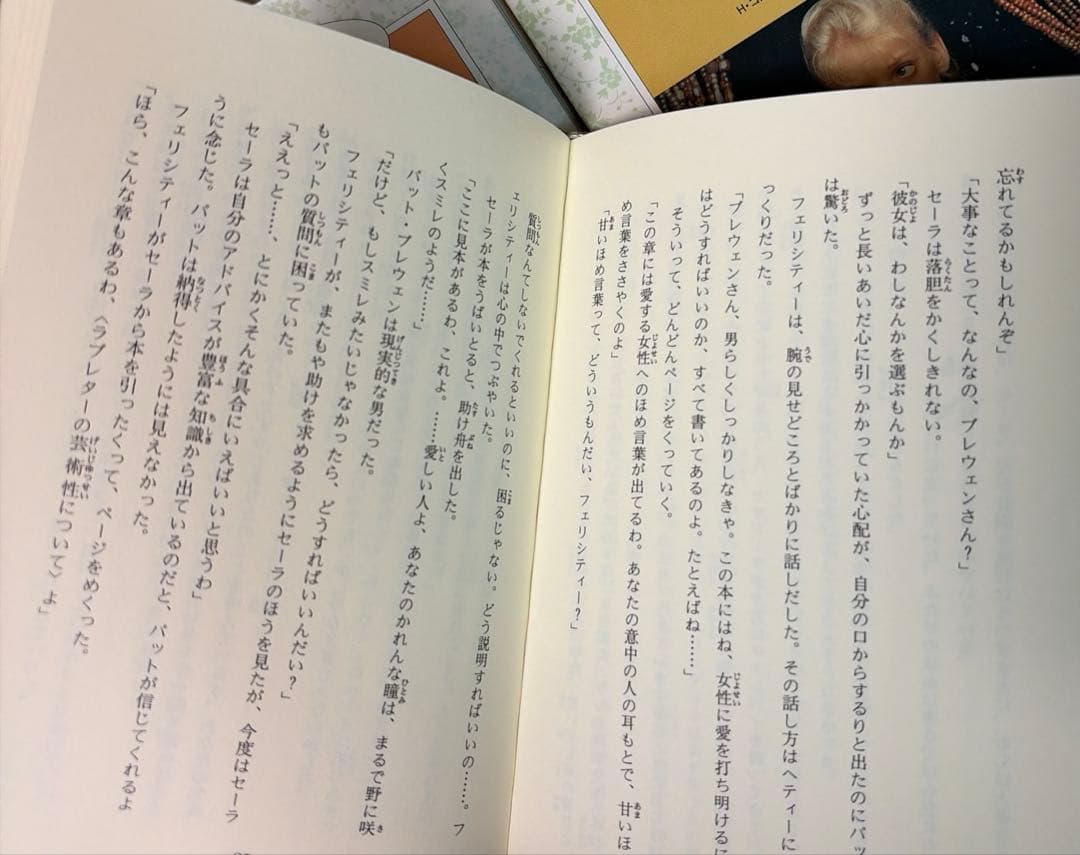 忘れてるかもしれんぞ」
「大事なことって、なんなの、プレウェンさん？」
セーラは落胆をかくしきれない。
「彼女は、わしなんかを選ぶもんか」
ずっと長いあいだ心に引っかかっていた心配が、自分の口からするりと出たのにパッ
は驚いた。
フェリシティーは、腕の見せどころとばかりに話しだした。その話し方はヘティーに
っくりだった。
「プレウェンさん、男らしくしっかりしなきゃ。この本にはね、女性に愛を打ち明けるに
はどうすればいいのか、すべて書いてあるのよ。たとえばね……」
そういって、どんどんページをくっていく。
「この章には愛する女性へのほめ言葉が出てるわ。あなたの意中の人の耳もとで、甘いほ
め言葉をささやくのよ」
「甘いほめ言葉って、どういうもんだい、フェリシティー？」
質問なんてしないでくれるといいのに、困るじゃない。どう説明すればいいの……。フ
ェリシティーは心の中でつぶやいた。
セーラが本をうばいとると、助け舟を出した。
「ここに見本があるわ、これよ。……愛しい人よ、あなたのかれんな瞳は、まるで野に咲
くスミレのようだ……」
パット・プレウェンは現実的な男だった。
「だけど、もしスミレみたいじゃなかったら、どうすればいいんだい？」
フェリシティーが、またもや助けを求めるようにセーラのほうを見たが、今度はセーラ
もパットの質問に困っていた。
「ええっと……、とにかくそんな具合にいえばいいと思うわ」
セーラは自分のアドバイスが豊富な知識から出ているのだと、パットが信じてくれるよ
うに念じた。パットは納得したようには見えなかった。
フェリシティーがセーラから本を引ったくって、ページをめくった。
「ほら、こんな章もあるわ、〈ラブレターの芸術性について〉よ」